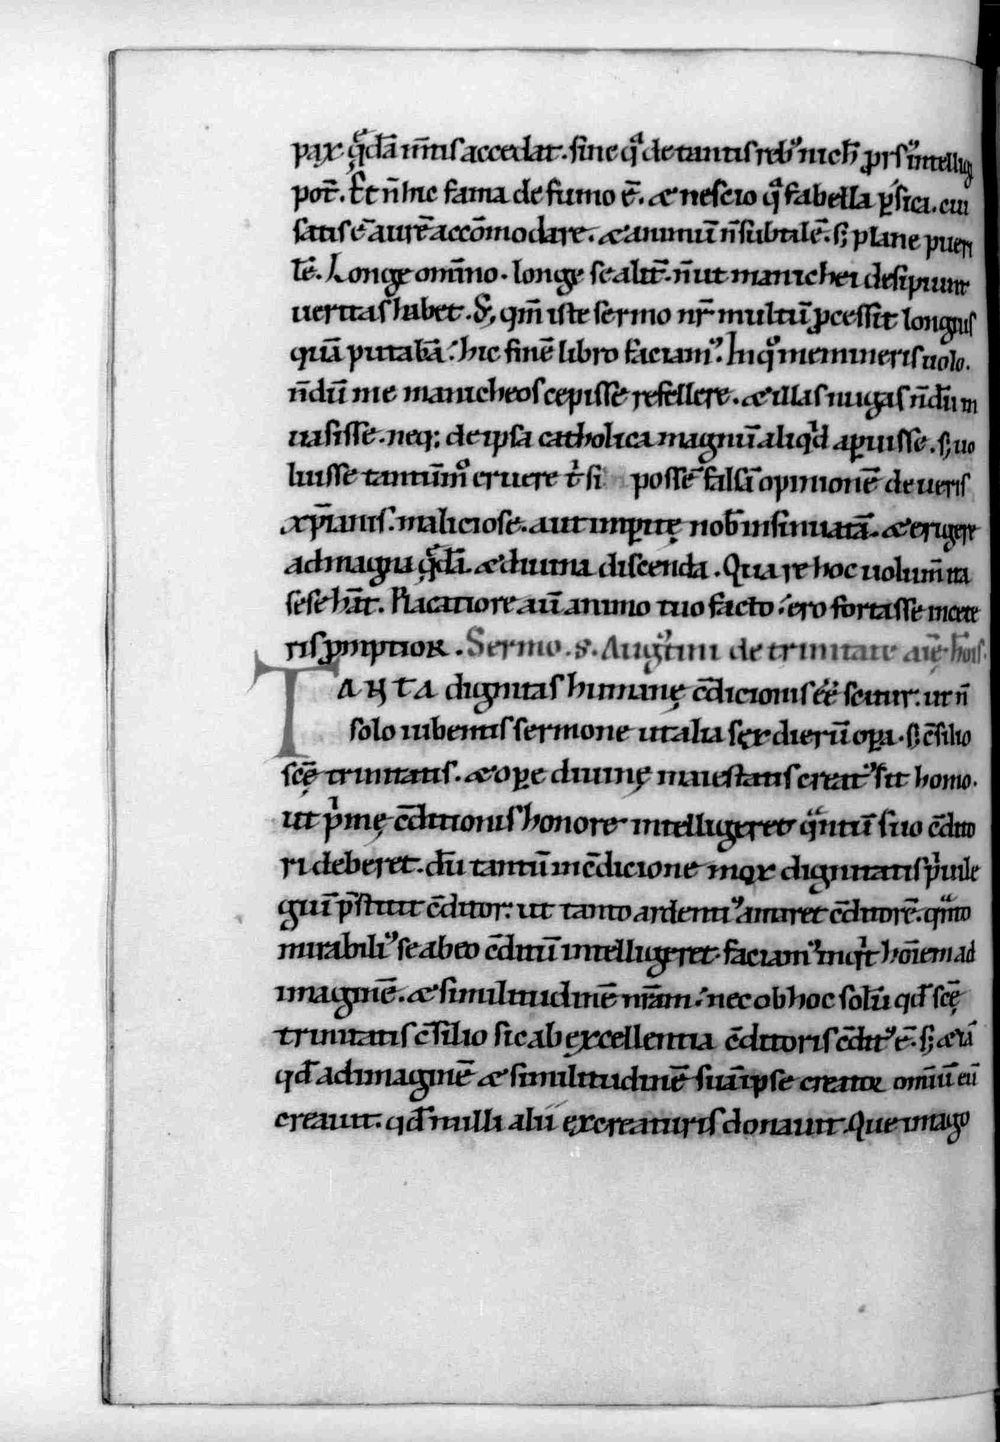 pax quedā m̄tis accedat. sine qͣ de tantis rebꝰ nich̄ ꝓrsꝰ intelligi
pot̄. Et n̄ hic fama de fumo ē. & nescio qͣ fabella ꝑsica. cui
satis ē aurē accōmodare. & animū n̄ subtilē. sꝫ plane pueri
lē. Longe om̄ino. longe se alit̄. n̄ ut manichei desipiunt
ueritas habet. Sꝫ qm̄ iste sermo nr̄ multū ꝓcessit longius
quā putabā. hic finē libro faciamꝰ. In qͦ memineris uolo.
n̄dū me manicheos cepisse refellere. & illas nugas n̄dū in
uasisse. neqꝫ de ipsa catholica magnū aliqͥd aꝑuisse. sꝫ uo
luisse tantūmͦ eruere t' si possē falsā opinionē de ueris
xp̄ianis. maliciose. aut imꝑitę nob̄ insinuatā. & erigere
ad magna quedā. & diuina discenda. Quare hoc uolum̄ ita
sese hāt. Placatiore aū animo tuo facto. ero fortasse in cete
ris ꝓmptior. Sermo. s. Augꝰtini de trinitate aīę. hōis.
TANTA dignitas humanę c̄dicionis eē̄ scitur. ut n̄
solo iubentis sermone ut alia sex dierū oꝑa. sꝫ c̄silio
scę̄ trinitatis. & oꝑe diuinę maiestatis creatꝰ sit homo.
ut pͥmę c̄ditionis honore intelligeret qͣntū suo c̄dito
ri deberet. dū tantū in c̄dicione mox dignitatis pͥuile
guī p̄stitit c̄ditor. ut tanto ardentiꝰ amaret c̄ditorē. qͣnto
mirabiliꝰ se ab eo c̄ditū intelligeret. faciamꝰ inqͥt hoīem ad
imaginē. & similitudinē nr̄am. nec ob hoc solū qd̄ scę̄
trinitatis c̄silio sic ab excellentia c̄ditoris c̄ditꝰ ē. sꝫ & iā
qd̄ ad imaginē & similitudinē suā ipse creator omiū eū
creauit. qd̄ nulli alii ex creaturis donauit. Que imago